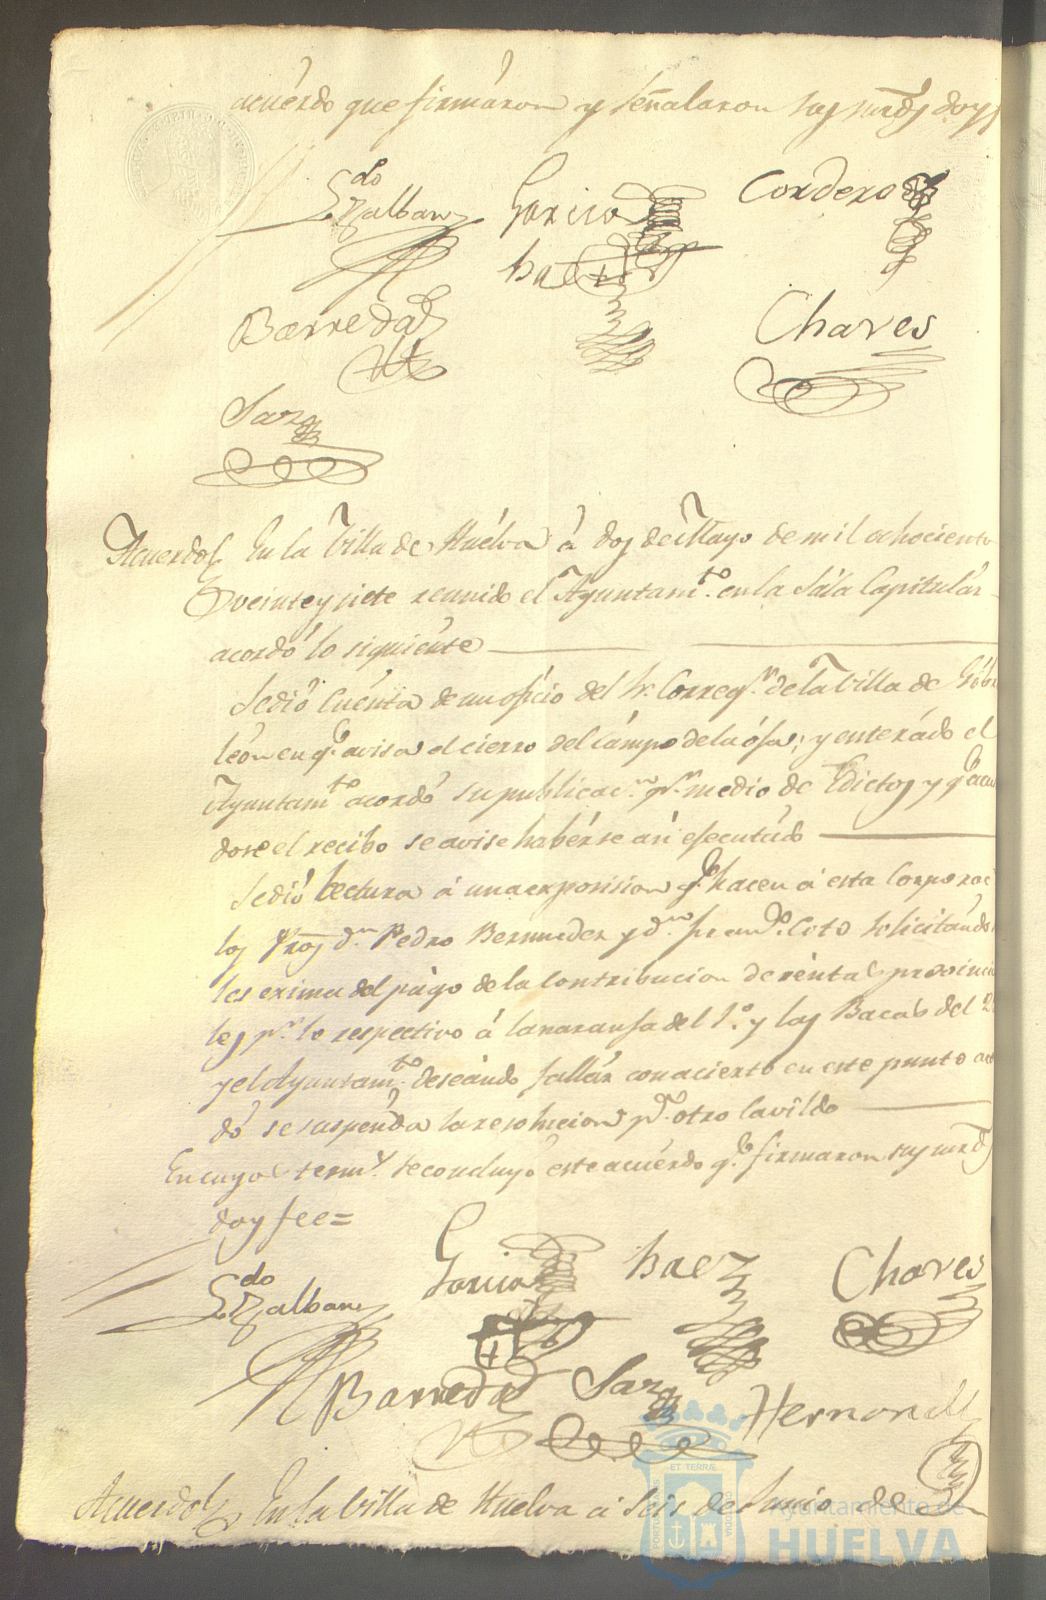 acuérdo que firmáron y señalaron sus mrds doy f
Ldo Zalbanz García Cordero
Baez
Barreda Chaves
Saxz
Acuerdo En la Villa de Huélva á dos de Mayo de mil ochociento
veinte y siete reunido el Ayuntamto. en la Sála Capitulár
acordó lo siguiénte
Se dió cuénta de un oficio del Sr. Corregr. de la Villa de Gibra
león en qe. avisa el cierro del Cámpo de la ósa; y enterádo el
Ayuntamto. acordó su publicacn. pr. medio de Edictos y qe. acu
dose el recibo se avise habérse así ejecutádo
Se dió lectura á una exposision qe. hacen á esta Corporac
los Pros dn. Pedro Bermudez y dn. Francco. Coto solicitándo
les exima del págo de la Contribucion de rentas provincia
les pr. lo respectivo á la naranja del 1o. y las Bacas del 2
y el Ayuntamto. deseándo fallár con acierto en este punto acor
dó se suspénda la resolucion pa. otro Cavildo
En cuyos terms. se concluyó este acuérdo qe. firmaron sus mrds
doy fee=
Ldo Zalbanz García Baez Chaves
Barreda Saxz Hernand
Acuerdo En la Villa de Huelva á Seis de Junio de
ET TERRÆ
Ayuntamiento de
HUELVA